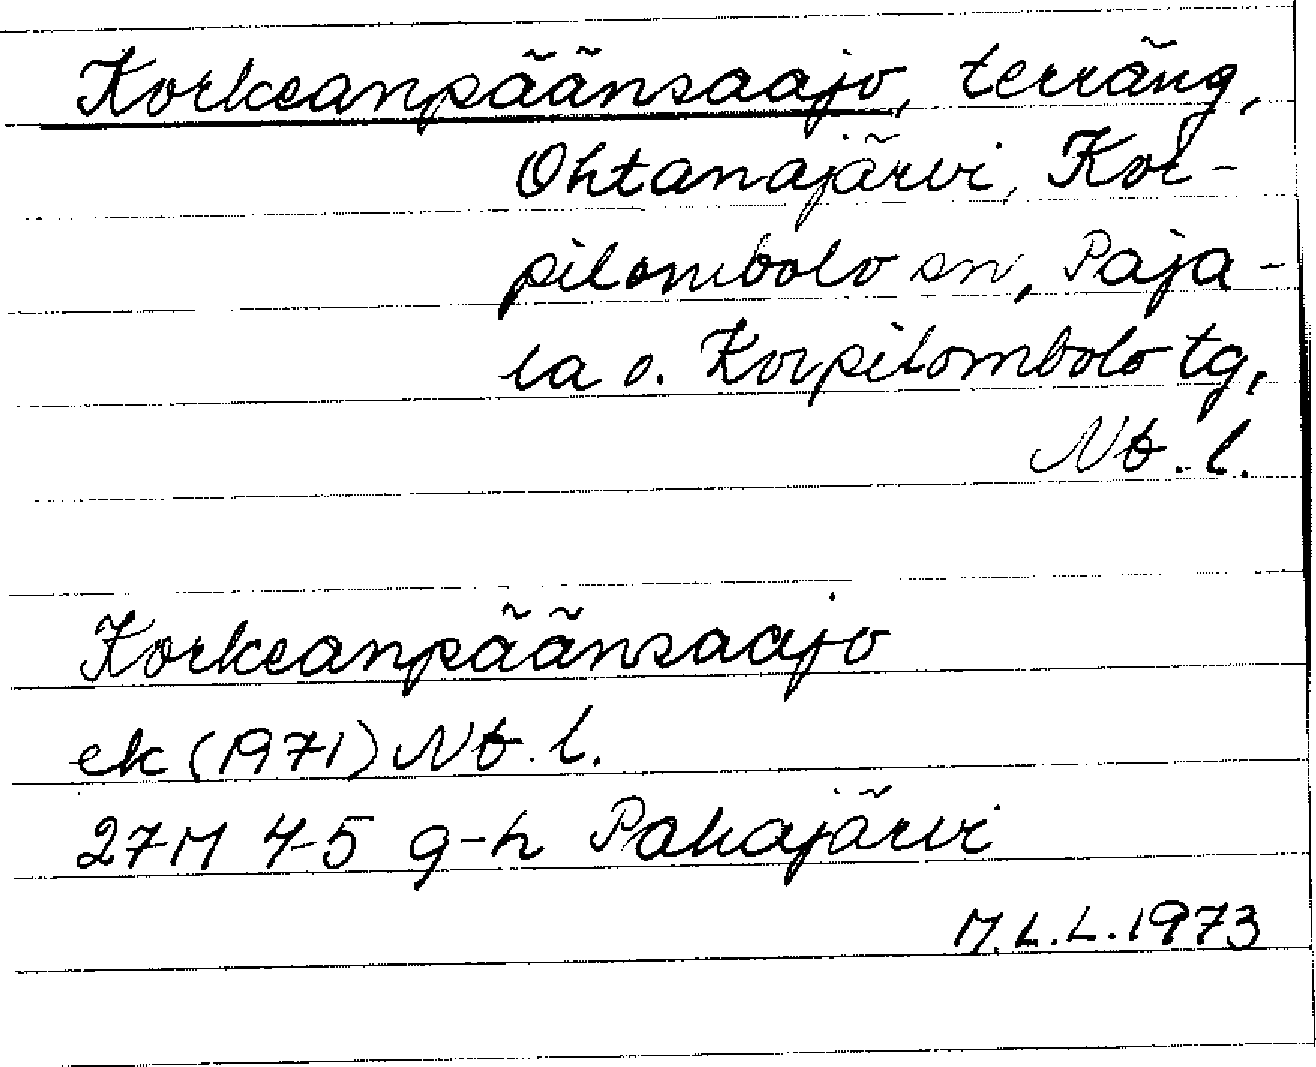 Korkeanpäänsaajo, terräng,
Ohtanajärvi, Kor-
pilombolo sn, Paja-
la o. Korpilombolo tg,
Nb. l.
Korkeanpäänsaajo
ek (1971) Nb. l.
27M 4-5 g-h Pakajärvi
M.L.L. 1973